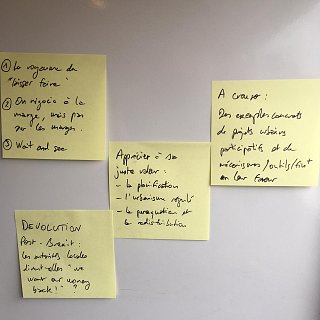 ① La vogueur du
"laisser faire"
② On négocie à la
marge, mais pas
sur les marges.
③ Wait and see
A creuser :
Des exemples concrets
de projets urbains
participatifs et de
mécanismes/outils/
en leur faveur
Apprécier à sa
juste valeur :
- la planification
- l'urbanisme régulé
- la péréquation et
la redistribution
DEVOLUTION
Post-Brexit :
les autorités locales
diront-elles "we
want our money
back!" ?